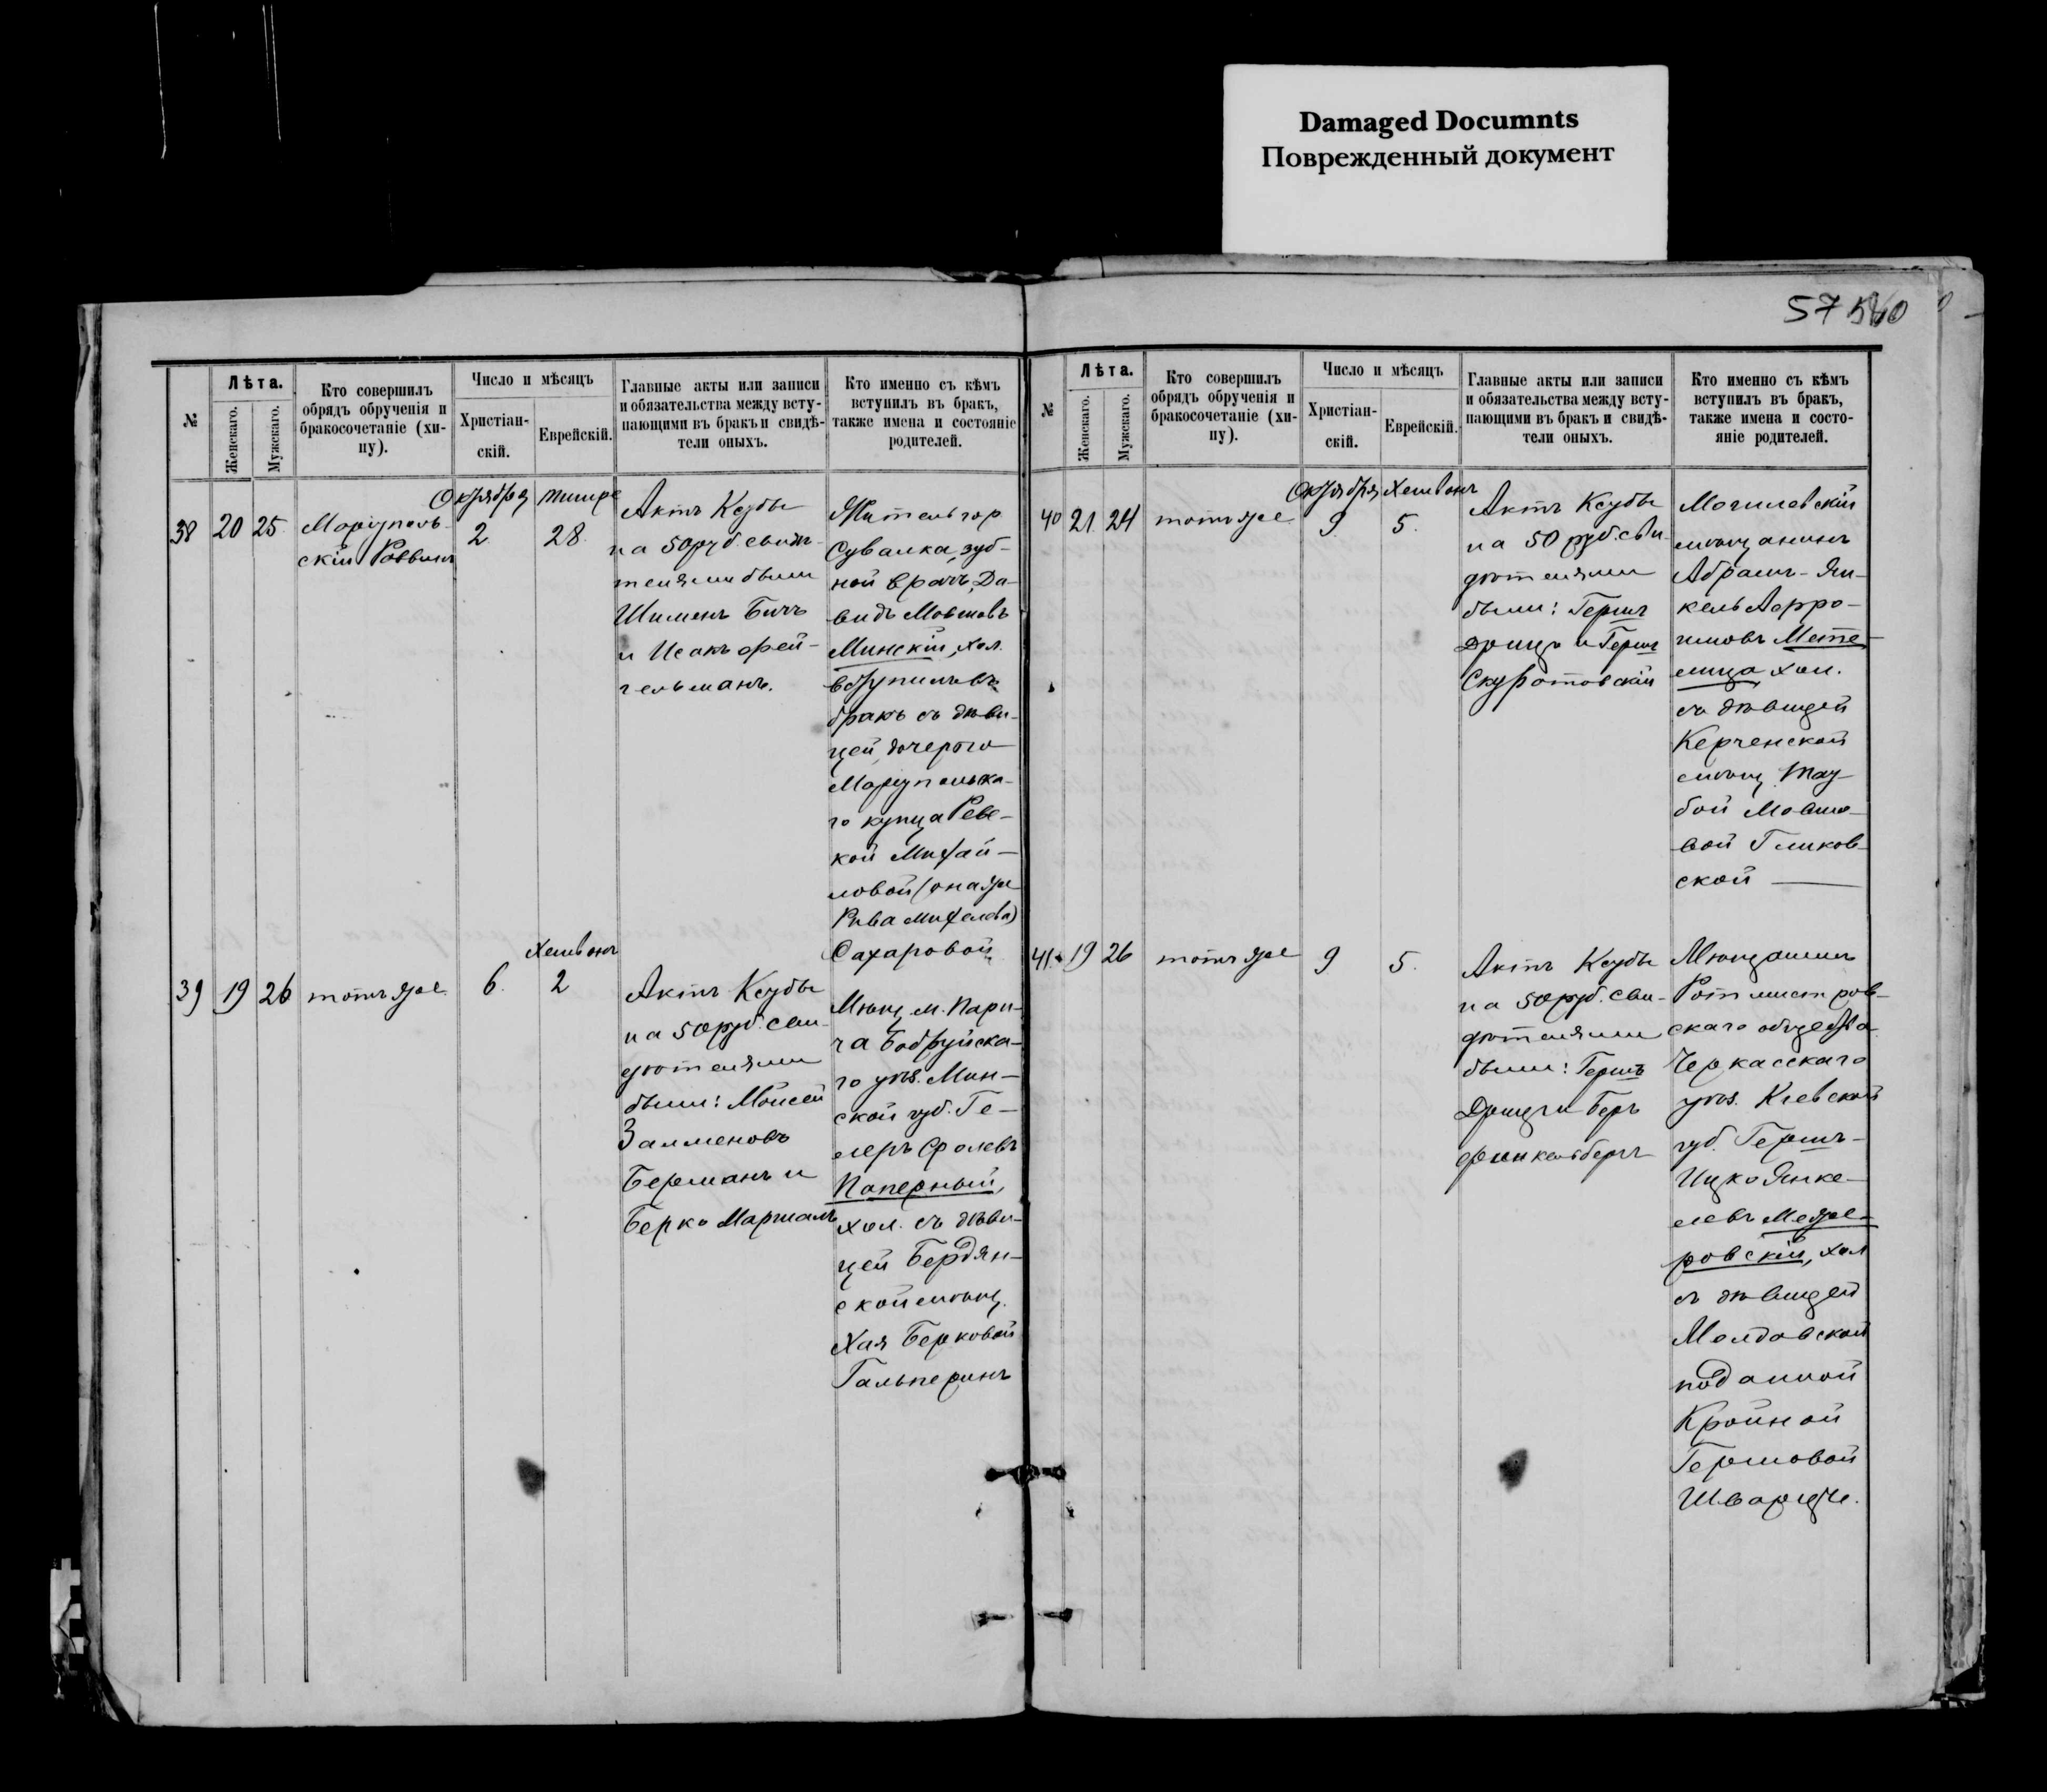 Damaged Documnts
Поврежденный документ
57
№
Лѣта.
Женскаго.
Мужскаго.
Кто совершилъ
обрядъ обрученія и
бракосочетаніе (хи-
пу).
Число и мѣсяцъ
Христіан-
скій.
Еврейскій.
Главные акты или записи
и обязательства между всту-
пающими въ бракъ и свидѣ-
тели оныхъ.
Кто именно съ кѣмъ
вступилъ въ бракъ,
также имена и состояніе
родителей.
Октября Тишре
38 20 25
Маріуполь-
скій Раввинъ
2 28
Актъ Ксубы
на 50 руб. свидѣ-
телями были
Шименъ Бичъ
и Исакъ Фей-
гельманъ.
Житель гор
Сувалка, зуб-
ной врачъ, Да-
видъ Мовшовъ
Минскій, хол.
вступилъ въ
бракъ съ дѣви-
цей, дочерью
Маріупольска-
го купца Реве-
кой Михай-
ловой (она же
Рива Михелева)
Сахаровой
Хешвонъ
39 19 26 тотъ же 6. 2
Актъ Ксубы
на 50 руб. сви-
дѣтелями
были: Моисей
Залменовъ
Берманъ и
Берко Маршалъ
Мѣщ. м. Пари-
ча Бобруйска-
го уѣз. Мин-
ской губ. Ге-
Паперный,
хол. съ дѣви-
цей Бердян-
ской мѣщ.
Хая Берковой
Гальперинъ
№
Лѣта.
Женскаго.
Мужскаго.
Кто совершилъ
обрядъ обрученія и
бракосочетаніе (хи-
пу).
Число и мѣсяцъ
Христіан-
скій.
Еврейскій.
Главные акты или записи
и обязательства между всту-
пающими въ бракъ и свидѣ-
тели оныхъ.
Кто именно съ кѣмъ
вступилъ въ бракъ,
также имена и состо-
яніе родителей.
Октября Хешвонъ
40 21 24 тотъ же 9 5.
Актъ Ксубы
на 50 руб. сви-
дѣтелями
были: Гершъ
и Гершъ
Скуратовскій
Могилевскій
мѣщанинъ
Абрамъ-Ян-
кель
Мете-
лица, хол.
съ дѣвицей
Керченской
мѣщ. Тау-
бой Мовшо-
вой Гликов-
ской —
41. 19 26 тотъ же 9 5.
Актъ Ксубы
на 50 руб. сви-
дѣтелями
были: Гершъ
и Беръ
Финкельбергъ
Мѣщанинъ
Ротмистров-
скаго общества
Черкасскаго
уѣз. Кіевской
губ. Гершъ-
Ицко Янке-
левъ Меже-
ровскій, хол
съ дѣвицей
Молдавской
поданной
Кройной
Гершовой
Шварцъ.